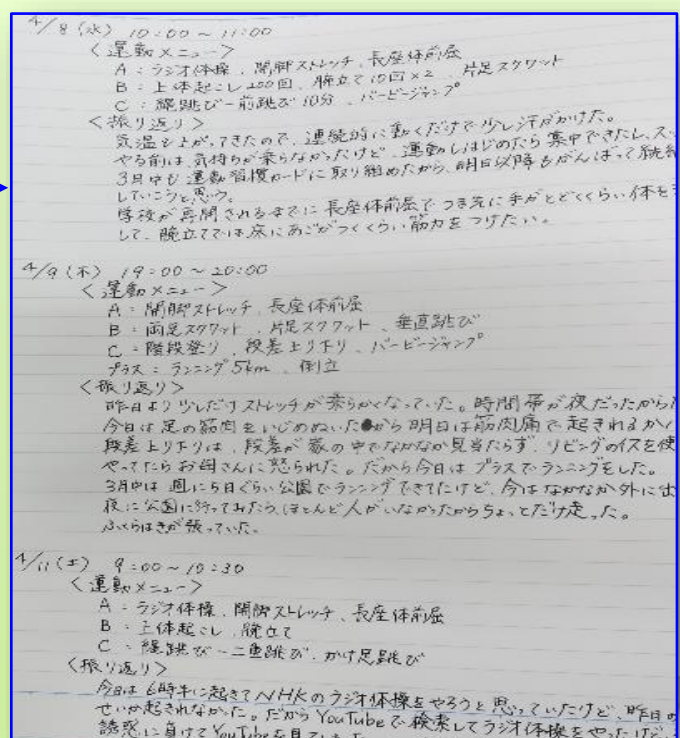 4/8(水) 10:00~11:00
<運動メニュー>
A:ラジオ体操、開脚ストレッチ、長座体前屈
B:上体起こし200回、腕立て10回×2、片足スクワット
C:縄跳び-前跳び10分、バービージャンプ
<振り返り>
気温も上がってきたので、連続的に動くだけで少し汗がかけた。
やる前は、気持ちが乗らなかったけど、運動しはじめたら集中できたし、ス
3月中も運動習慣カードに取り組めたから、明日以降もがんばって続
していこうと思う。
学校が再開されるまでに長座体前屈でつま先に手がとどくくらい体を
して、腕立てでは床にあごがつくくらい筋力をつけたい。
4/9(木) 19:00~20:00
<運動メニュー>
A:開脚ストレッチ、長座体前屈
B:両足スクワット、片足スクワット、垂直跳び
C:階段登り、段差上り下り、バービージャンプ
プラス:ランニング5km、倒立
<振り返り>
昨日より少しだけストレッチが柔らかくなっていた。時間帯が夜だったから
今日は足の筋肉をいじめぬいたから明日は筋肉痛で起きれるか
段差上り下りは、段差が家の中でなかなか見当たらず、リビングのイスを使
やってたらお母さんに怒られた。だから今日はプラスでランニングをした。
3月中は週に5日ぐらい公園でランニングできてたけど、今はなかなか外に出
夜に公園に行ってみたら、ほとんど人がいなかったからちょっとだけ走った。
ふくらはぎが張っていた。
4/11(土) 9:00~10:30
<運動メニュー>
A:ラジオ体操、開脚ストレッチ、長座体前屈
B:上体起こし、腕立て
C:縄跳び-二重跳び、かけ足跳び
<振り返り>
今日は6時半に起きてNHKのラジオ体操をやろうと思っていたけど、昨日の
せいか起きれなかった。だからYouTubeで検索してラジオ体操をやったけど、
誘惑に負けてYouTubeを見ていた